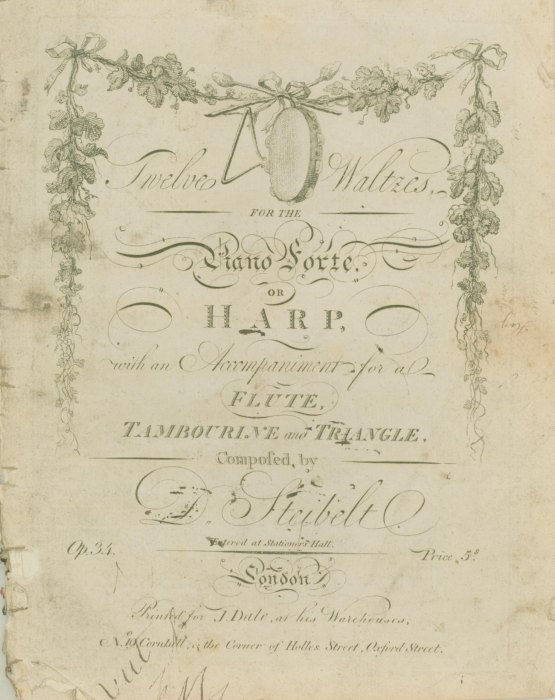 Twelve Waltzes,
FOR THE
Piano Forte,
OR
HARP,
with an Accompaniment for a
FLUTE,
TAMBOURINE and TRIANGLE,
Compoſed, by
D. Steibelt
Entered at Stationers Hall.
Op. 34. Price 5s
London
Printed for J. Dale, at his Warehouses,
No. 19 Cornhill, & the Corner of Holles Street, Oxford Street.